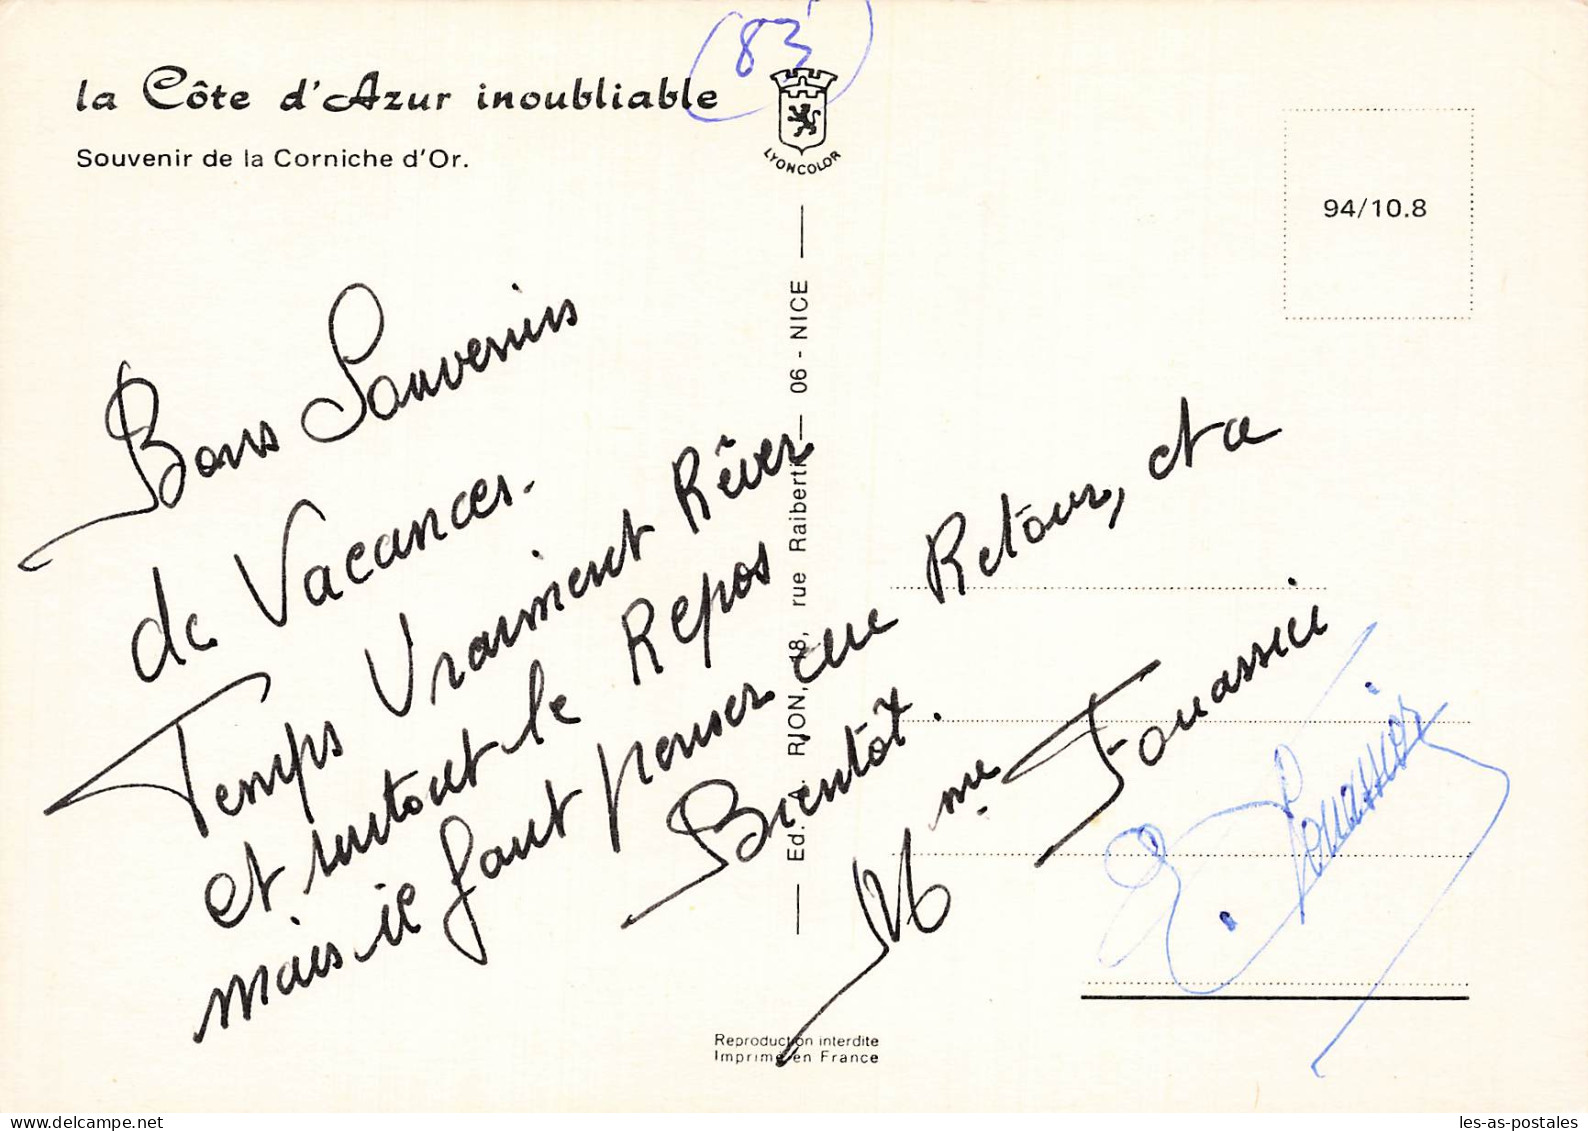 (83)
la Côte d'Azur inoubliable
Souvenir de la Corniche d'Or.
LYONCOLOR
94/10.8
Bons Souvenirs
de Vacances.
Temps Vraiment Rêver
et surtout le Repos
mais il faut penser au Retour, et a
Bientôt.
Mme Fouassier
E. Fouassier
Ed. A. RION, 18, rue Raiberti — 06 - NICE
Reproduction interdite
Imprimé en France
Delcampe.net
les-as-postales